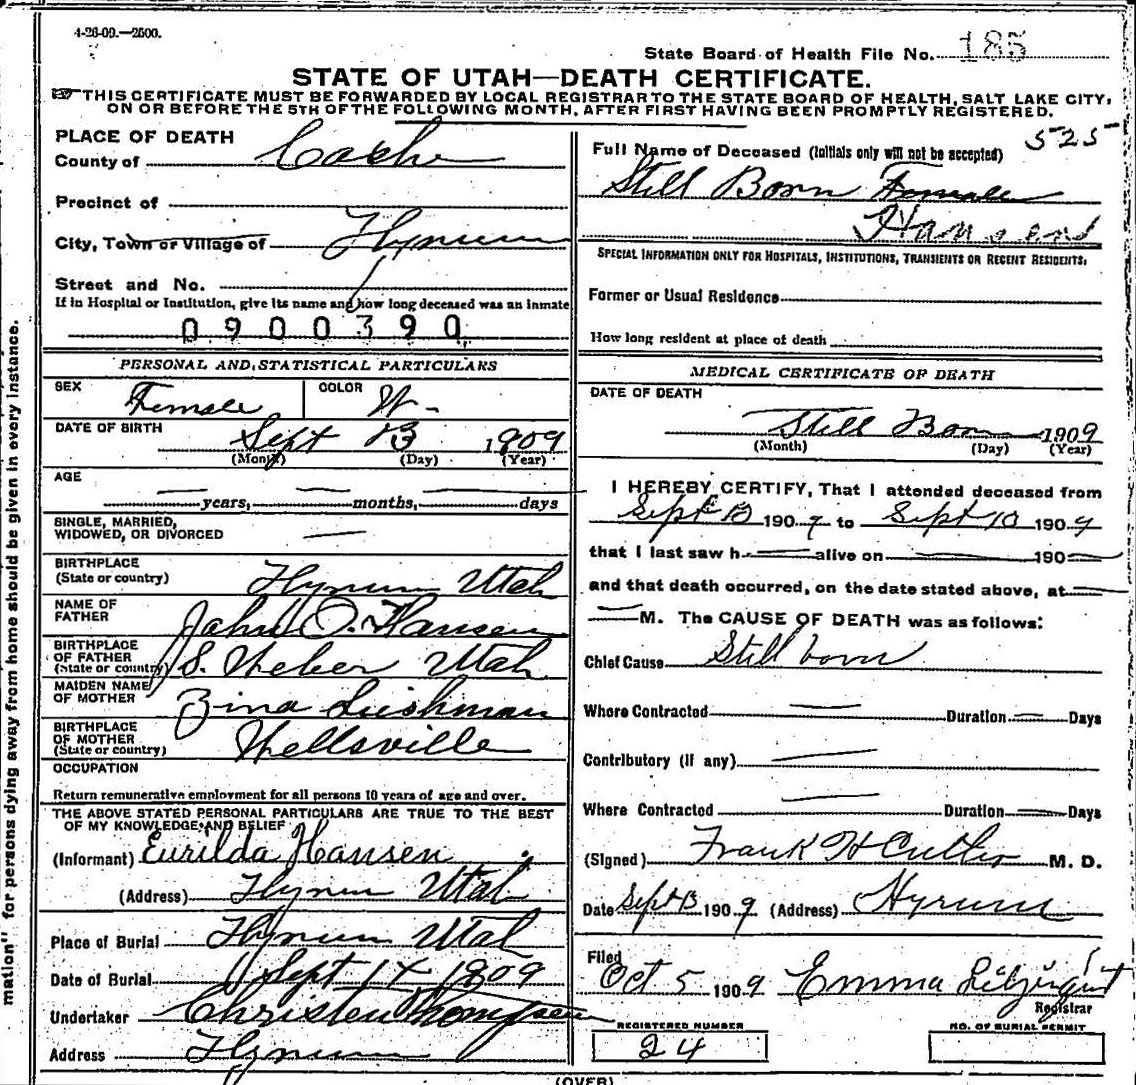 4-26-09.—2500.
State Board of Health File No. 185
STATE OF UTAH—DEATH CERTIFICATE.
THIS CERTIFICATE MUST BE FORWARDED BY LOCAL REGISTRAR TO THE STATE BOARD OF HEALTH, SALT LAKE CITY,
ON OR BEFORE THE 5TH OF THE FOLLOWING MONTH, AFTER FIRST HAVING BEEN PROMPTLY REGISTERED.
PLACE OF DEATH
County of Cache
Precinct of
City, Town or Village of Hyrum
Street and No.
If in Hospital or Institution, give its name and how long deceased was an inmate
0900390
PERSONAL AND STATISTICAL PARTICULARS
SEX Female COLOR W-
DATE OF BIRTH Sept 13 1909
(Month) (Day) (Year)
AGE
— years, — months, — days
SINGLE, MARRIED,
WIDOWED, OR DIVORCED —
BIRTHPLACE
(State or country) Hyrum Utah
NAME OF
FATHER John O. Hansen
BIRTHPLACE
OF FATHER
(State or country) S. Weber Utah
MAIDEN NAME
OF MOTHER Zina Lishman
BIRTHPLACE
OF MOTHER
(State or country) Wellsville
OCCUPATION
Return remunerative employment for all persons 10 years of age and over.
THE ABOVE STATED PERSONAL PARTICULARS ARE TRUE TO THE BEST
OF MY KNOWLEDGE AND BELIEF
(Informant) Eurilda Hansen
(Address) Hyrum Utah
Place of Burial Hyrum Utah
Date of Burial Sept 14 1909
Undertaker Christen Thompsen
Address Hyrum
525
Full Name of Deceased (Initials only will not be accepted)
Still Born Female
Hansen
SPECIAL INFORMATION ONLY FOR HOSPITALS, INSTITUTIONS, TRANSIENTS OR RECENT RESIDENTS.
Former or Usual Residence
How long resident at place of death
MEDICAL CERTIFICATE OF DEATH
DATE OF DEATH
Still Born 1909
(Month) (Day) (Year)
I HEREBY CERTIFY, That I attended deceased from
Sept 13 1909 to Sept 10 1909
that I last saw h — alive on — 190 —
and that death occurred, on the date stated above, at —
— M. The CAUSE OF DEATH was as follows:
Chief Cause Still born
Where Contracted — Duration — Days
Contributory (if any) —
Where Contracted — Duration — Days
(Signed) Frank H Cutler M. D.
Date Sept 13 1909 (Address) Hyrum
Filed
Oct 5 1909 Emma
Registrar
REGISTERED NUMBER
24
NO. OF BURIAL PERMIT
(OVER)
mation" for persons dying away from home should be given in every instance.